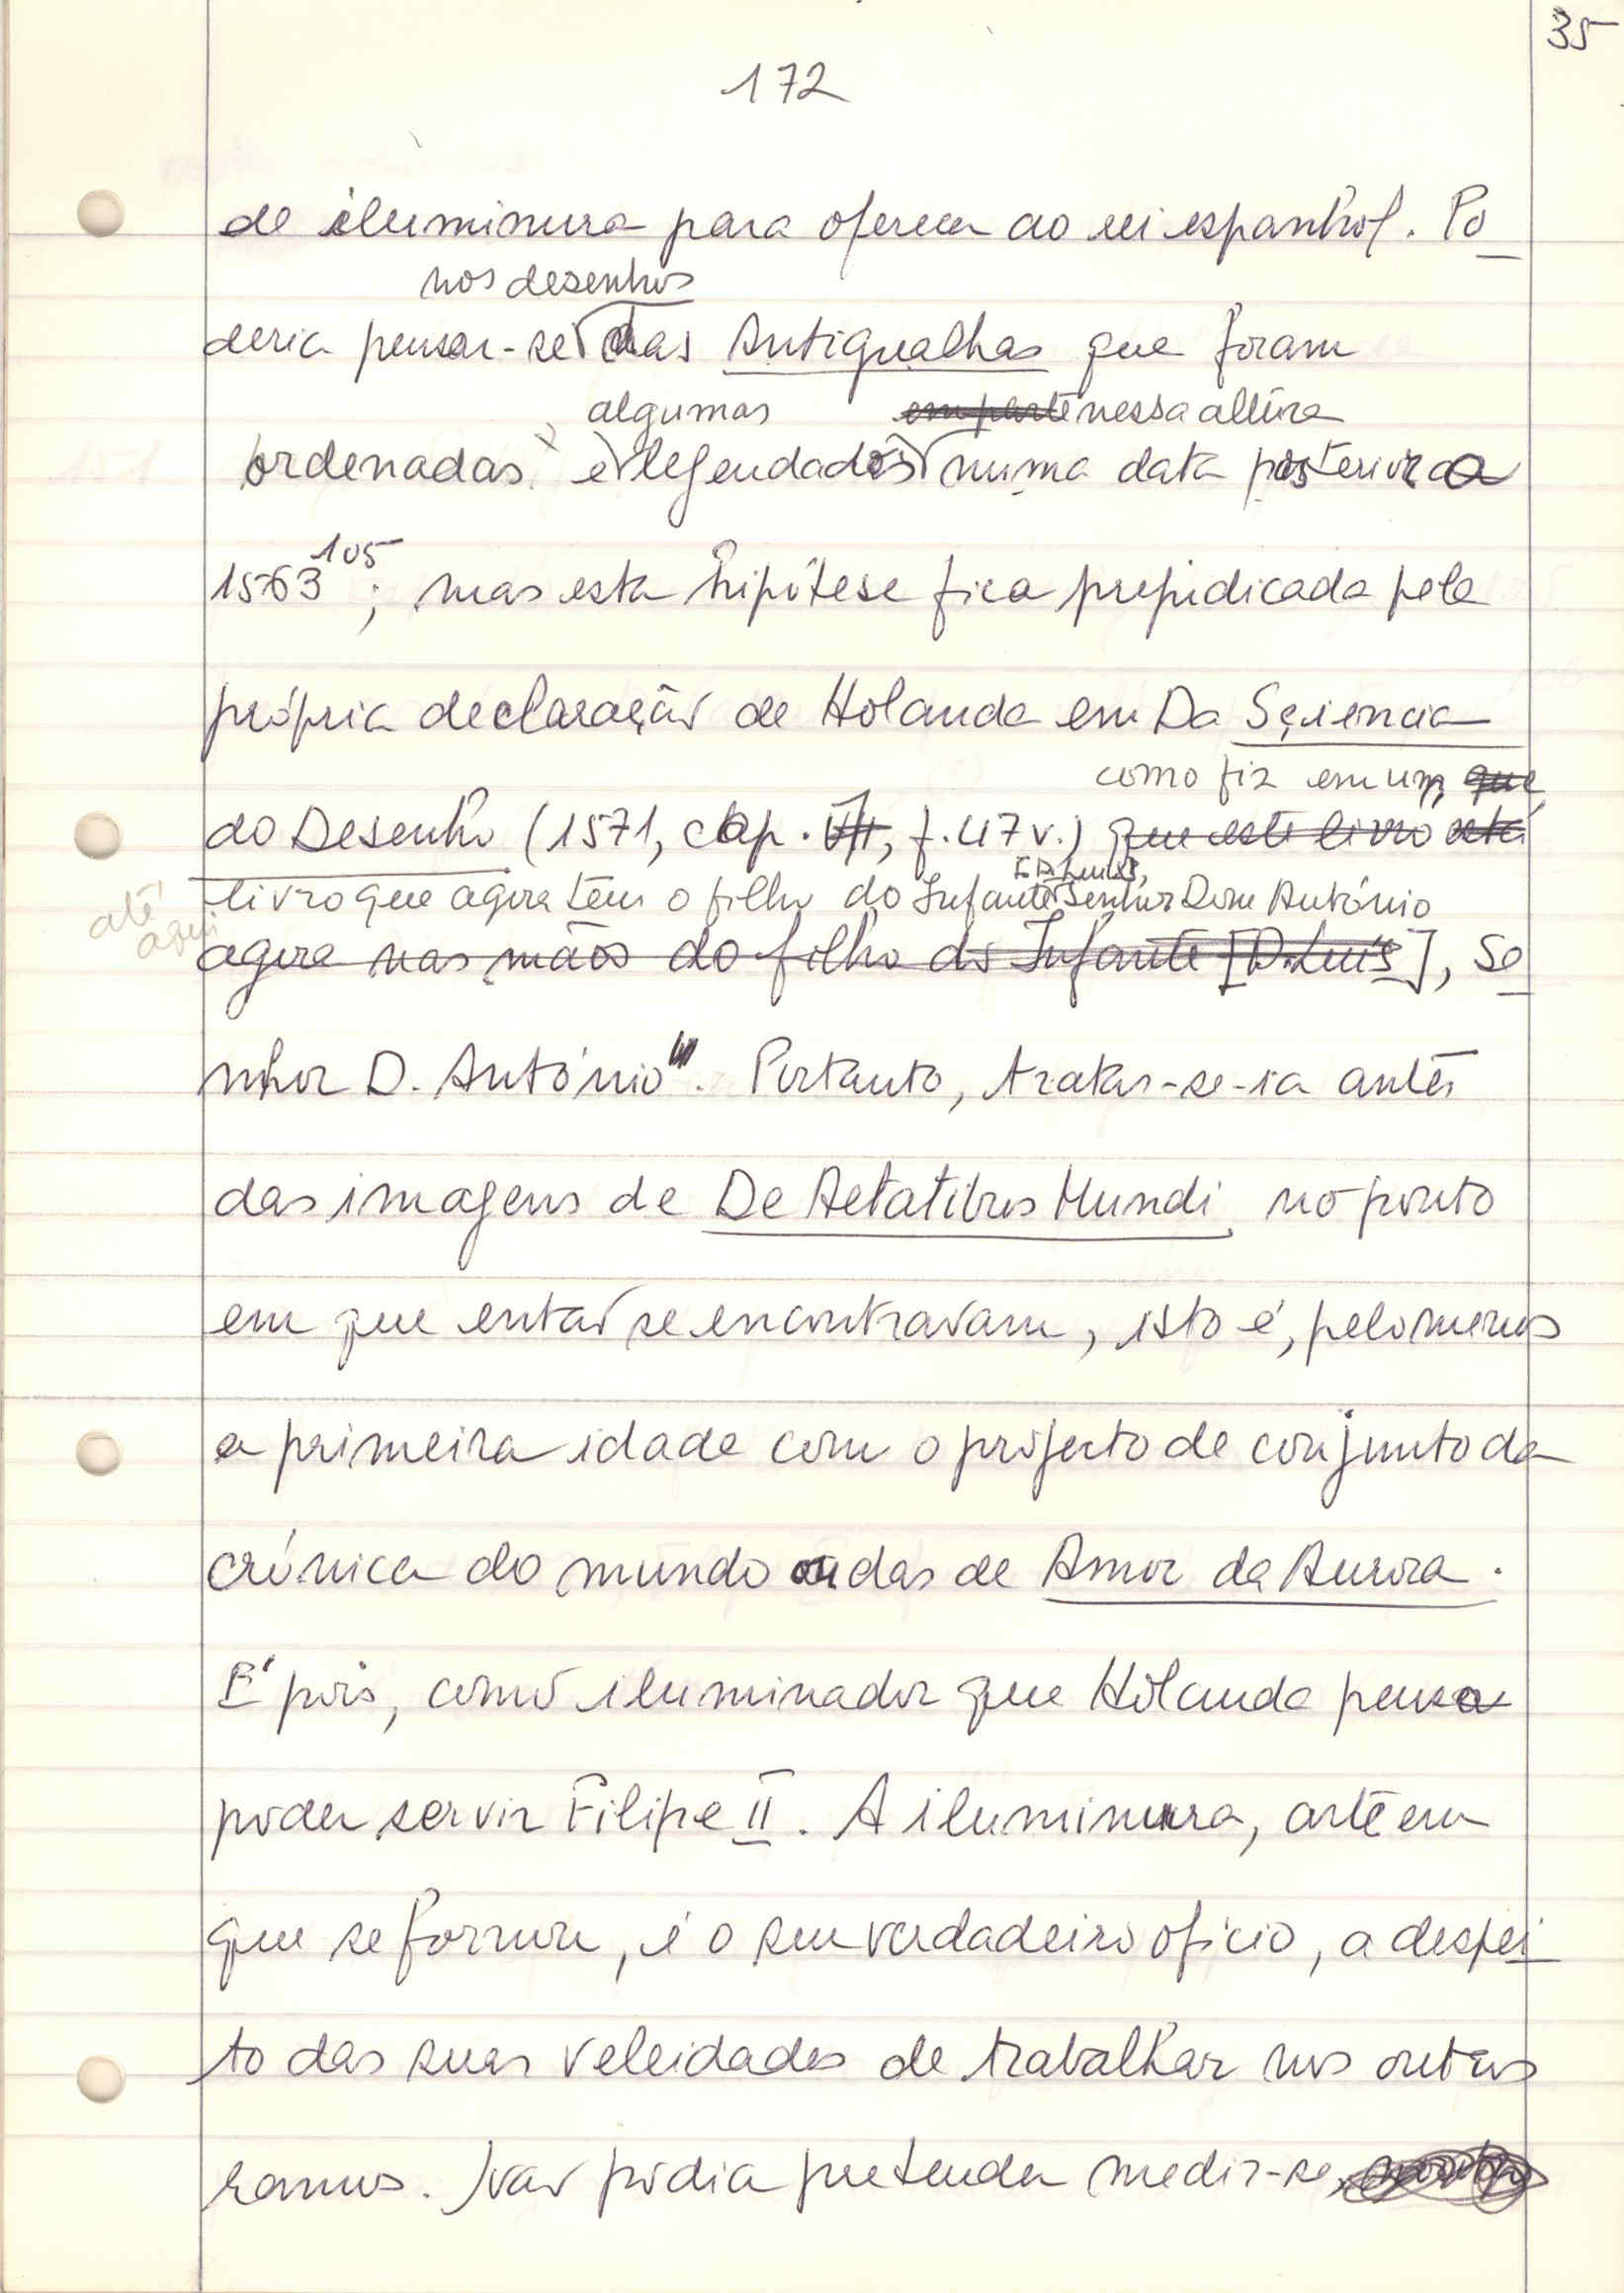 35
172
de iluminura para oferecer ao rei espanhol. Po
nos desenhos
deria pensar-se das Antigualhas que foram
algumas em parte nessa altura
ordenadas e legendados numa data posterior a
1563 105; mas esta hipótese fica prejudicada pela
própria declaração de Holanda em Da Sçiencia
como fiz em um, que
do Desenho (1571, cap. VII, f. 47 v.) que este livro está
[D. Luís],
livro que agora tem o filho do Infante Senhor Dom António
até
aqui
agora nas mãos do filho do Infante [D. Luís], Se
nhor D. António". Portanto, tratar-se-ia antes
das imagens de De Aetatibus Mundi no ponto
em que então se encontravam, isto é, pelo menos
a primeira idade com o projecto de conjunto da
crónica do mundo ou das de Amor da Aurora.
É pois, como iluminador que Holanda pensa
poder servir Filipe II. A iluminura, arte em
que se formou, é o seu verdadeiro ofício, a despei
to das suas veleidades de trabalhar nos outros
ramos. Não podia pretender medir-se,